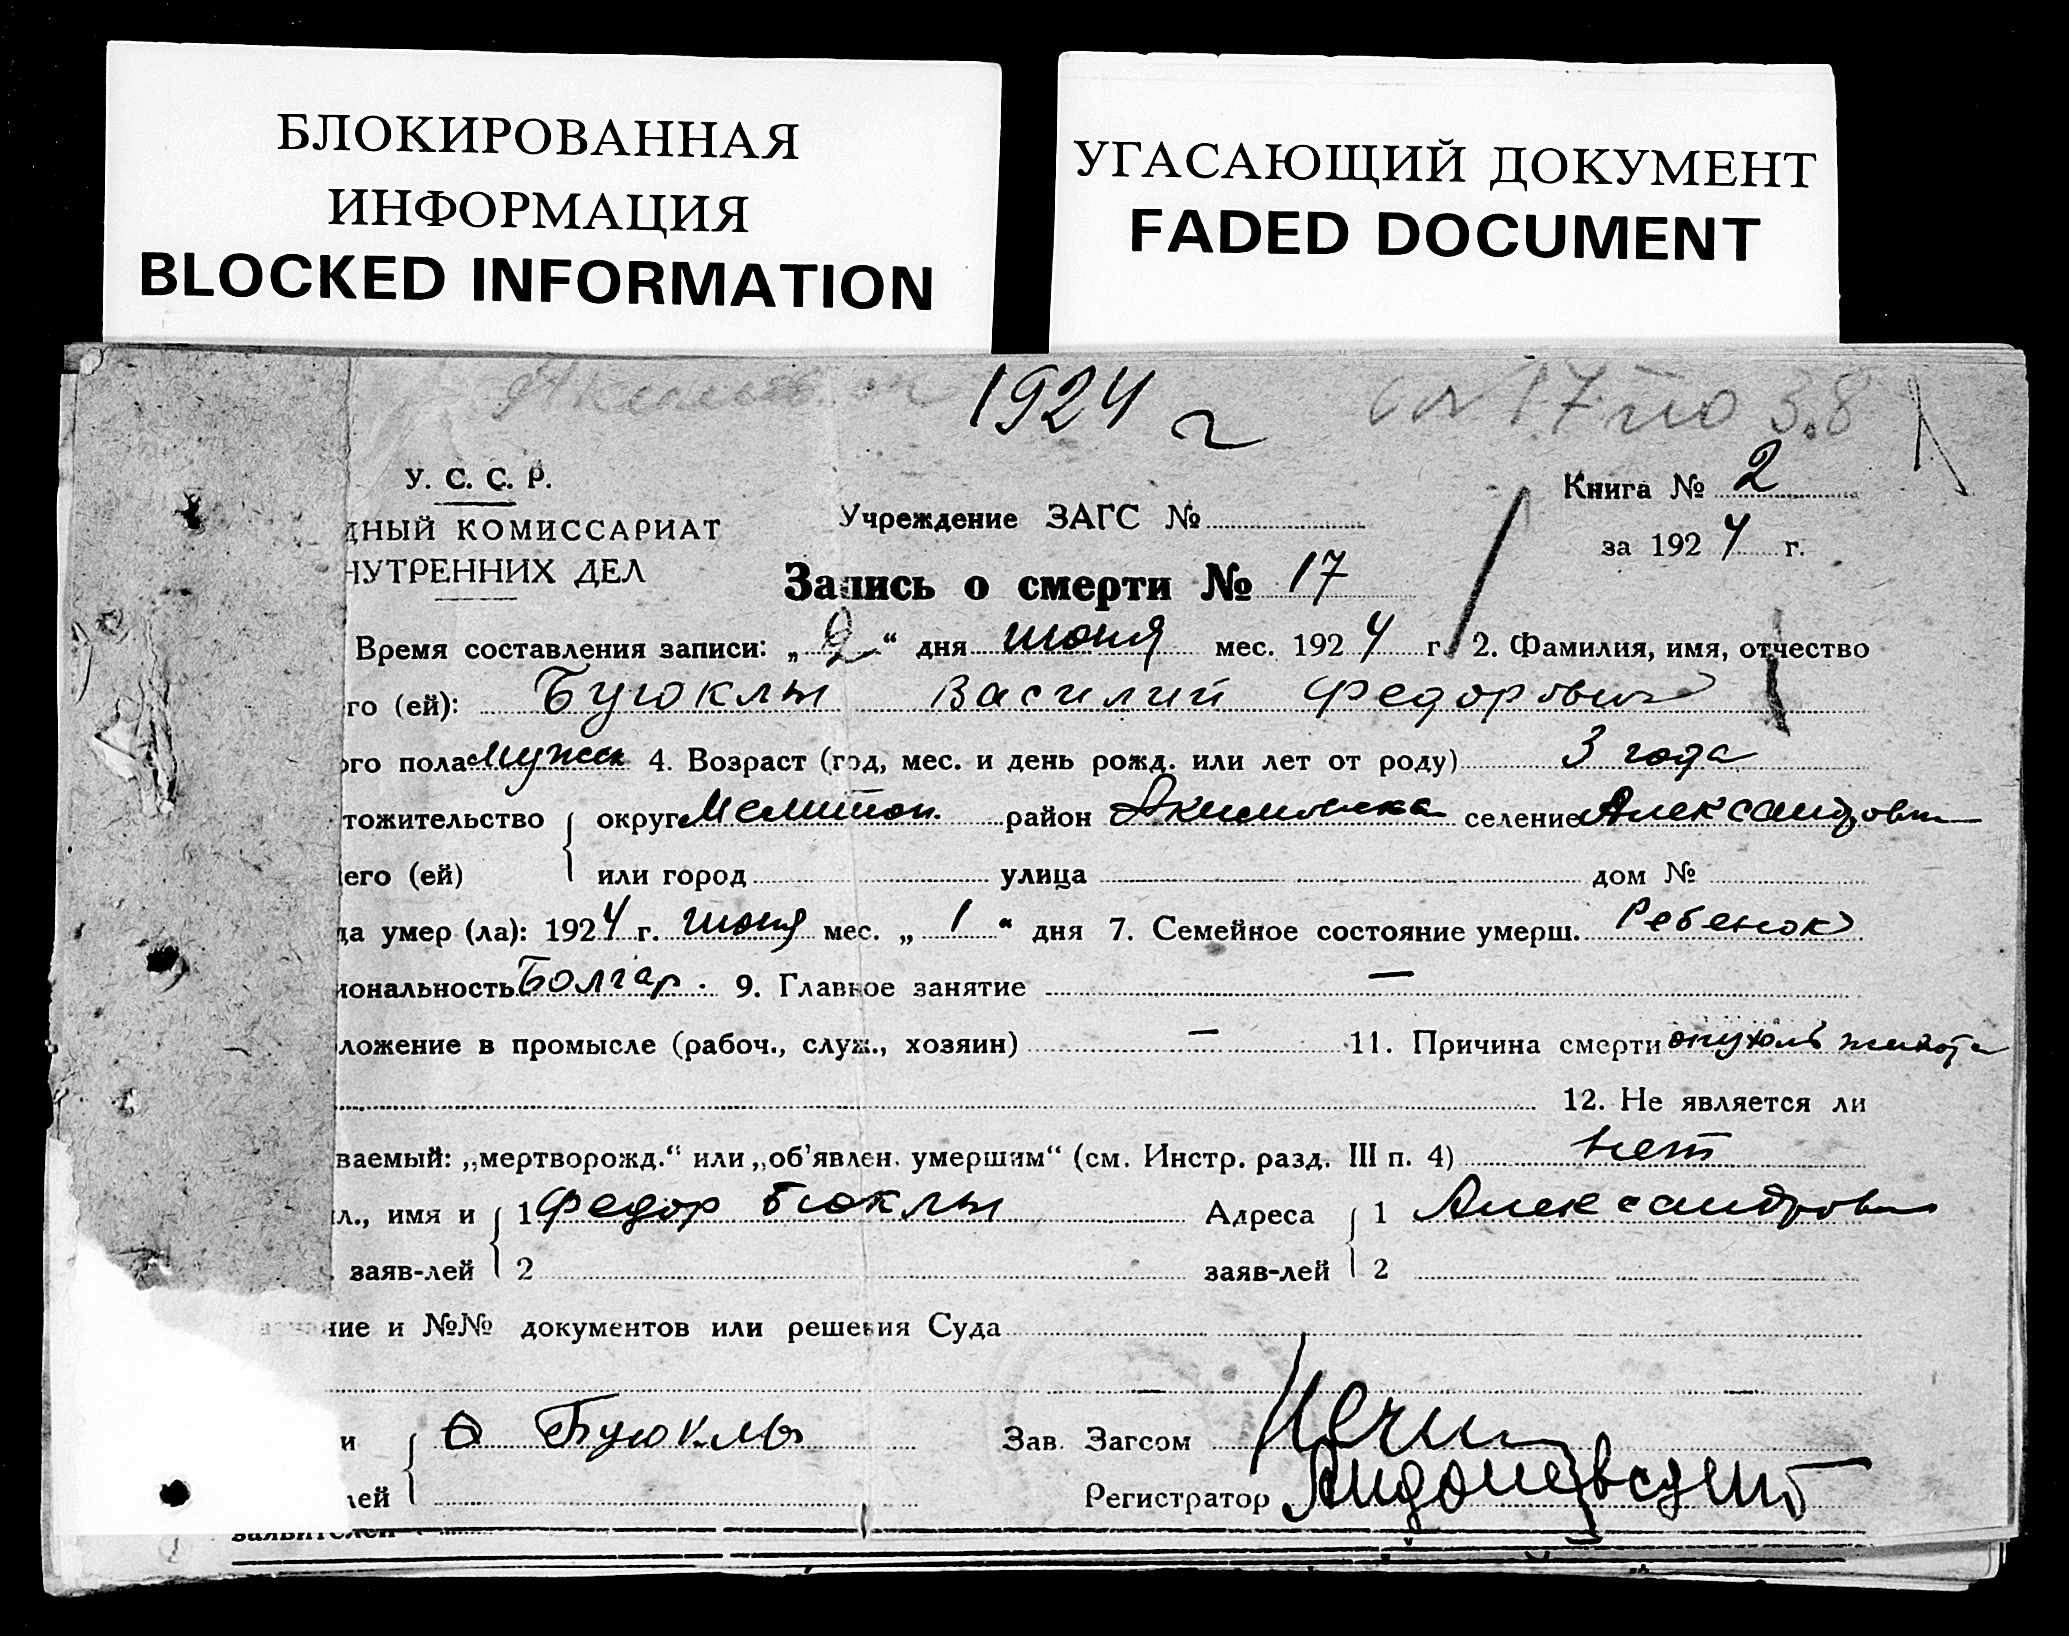 БЛОКИРОВАННАЯ
ИНФОРМАЦИЯ
BLOCKED INFORMATION
УГАСАЮЩИЙ ДОКУМЕНТ
FADED DOCUMENT
1924 г
17 по 38
У. С. С. Р.
ДНЫЙ КОМИССАРИАТ
НУТРЕННИХ ДЕЛ
Учреждение ЗАГС №
Книга № 2
за 1924 г.
Запись о смерти № 17
Время составления записи: „2“ дня июня мес. 1924 г. 2. Фамилия, имя, отчество
го (ей): Буюклы Василий Федорович
ого пола Мужск 4. Возраст (год, мес. и день рожд. или лет от роду) 3 года
тожительство округ Мелитоп. район Акимовка селение Александровка
его (ей) или город улица дом №
да умер (ла): 1924 г. июня мес. „1“ дня 7. Семейное состояние умерш. Ребенок
иональность Болгар. 9. Главное занятие —
ложение в промысле (рабоч., служ., хозяин) — 11. Причина смерти опухоль живота
12. Не является ли
ваемый: „мертворожд.“ или „об'явлен. умершим“ (см. Инстр. разд. III п. 4) нет
л., имя и 1 Федор Бюклы Адреса 1 Александровка
заяв-лей 2 заяв-лей 2
ние и №№ документов или решения Суда
и Ф Буюклы Зав. Загсом
лей Регистратор
заявителей